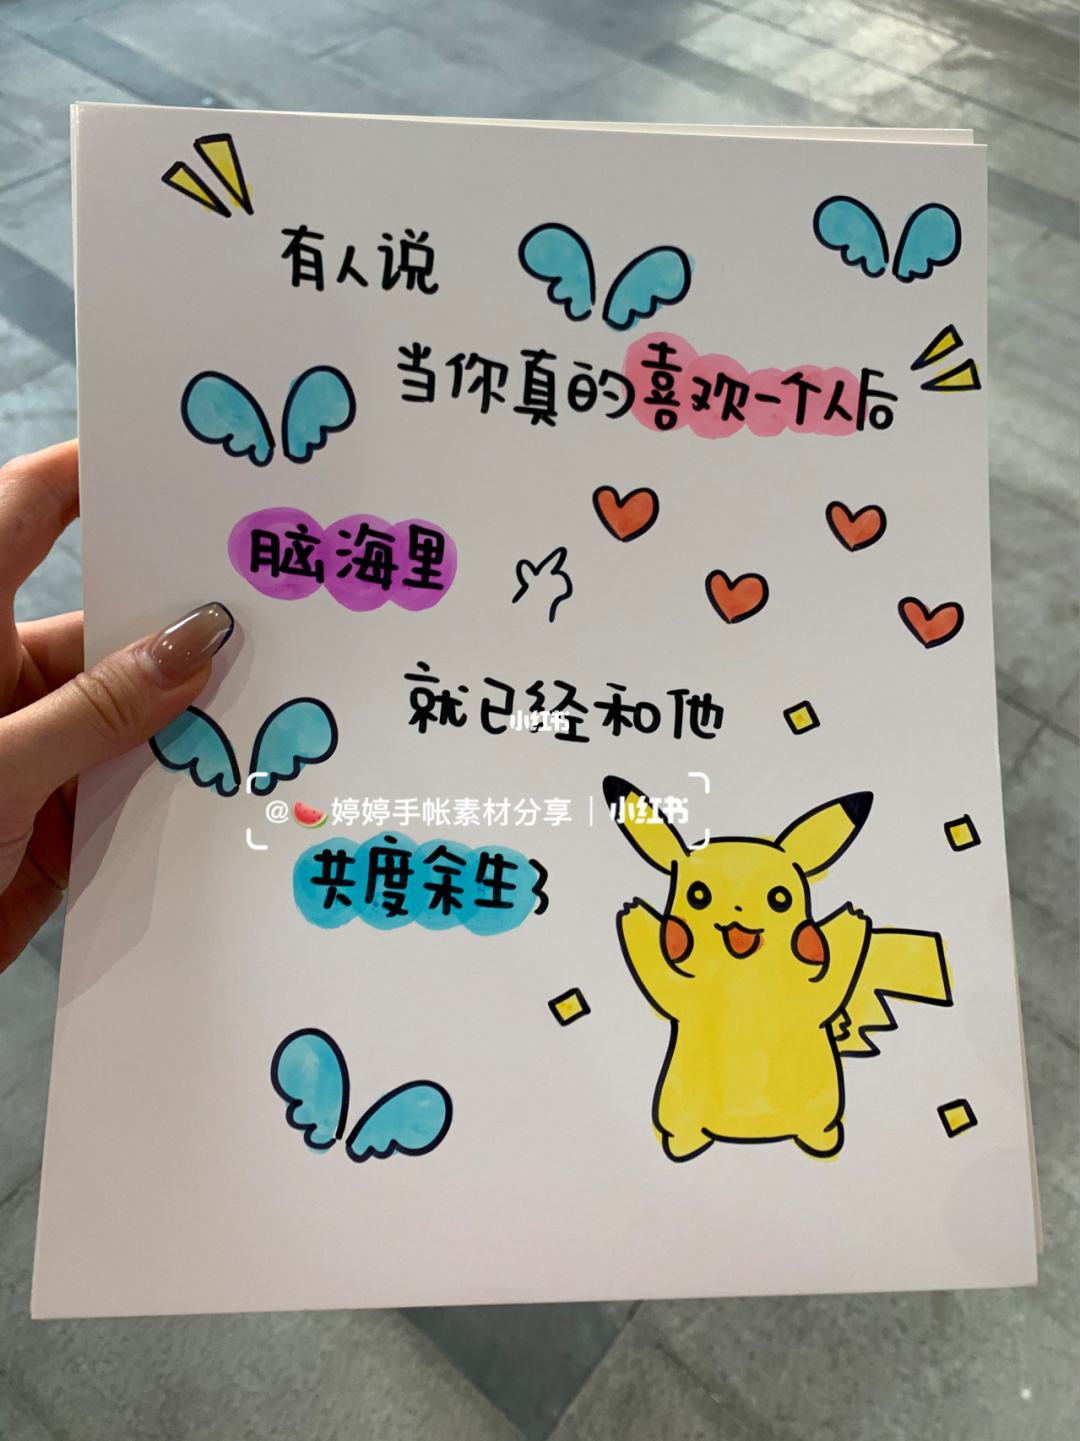 有人说
当你真的喜欢一个人后
脑海里
就已经和他
小红书
@🍉婷婷手帐素材分享｜小红书
共度余生了